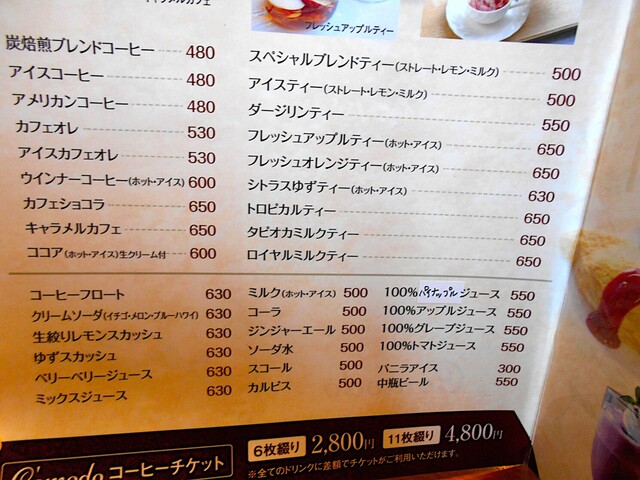 キャラメルカフェ
フレッシュアップルティー
炭焙煎ブレンドコーヒー 480
アイスコーヒー 480
アメリカンコーヒー 480
カフェオレ 530
アイスカフェオレ 530
ウインナーコーヒー(ホット・アイス) 600
カフェショコラ 650
キャラメルカフェ 650
ココア(ホット・アイス)生クリーム付 600
スペシャルブレンドティー(ストレート・レモン・ミルク) 500
アイスティー(ストレート・レモン・ミルク) 500
ダージリンティー 550
フレッシュアップルティー(ホット・アイス) 650
フレッシュオレンジティー(ホット・アイス) 650
シトラスゆずティー(ホット・アイス) 630
トロピカルティー 650
タピオカミルクティー 650
ロイヤルミルクティー 650
コーヒーフロート 630
クリームソーダ(イチゴ・メロン・ブルーハワイ) 630
生絞りレモンスカッシュ 630
ゆずスカッシュ 630
ベリーベリージュース 630
ミックスジュース 630
ミルク(ホット・アイス) 500
コーラ 500
ジンジャーエール 500
ソーダ水 500
スコール 500
カルピス 500
100%パイナップルジュース 550
100%アップルジュース 550
100%グレープジュース 550
100%トマトジュース 550
バニラアイス 300
中瓶ビール 550
Comodo コーヒーチケット
6枚綴り 2,800円 11枚綴り 4,800円
※全てのドリンクに差額でチケットがご利用いただけます。